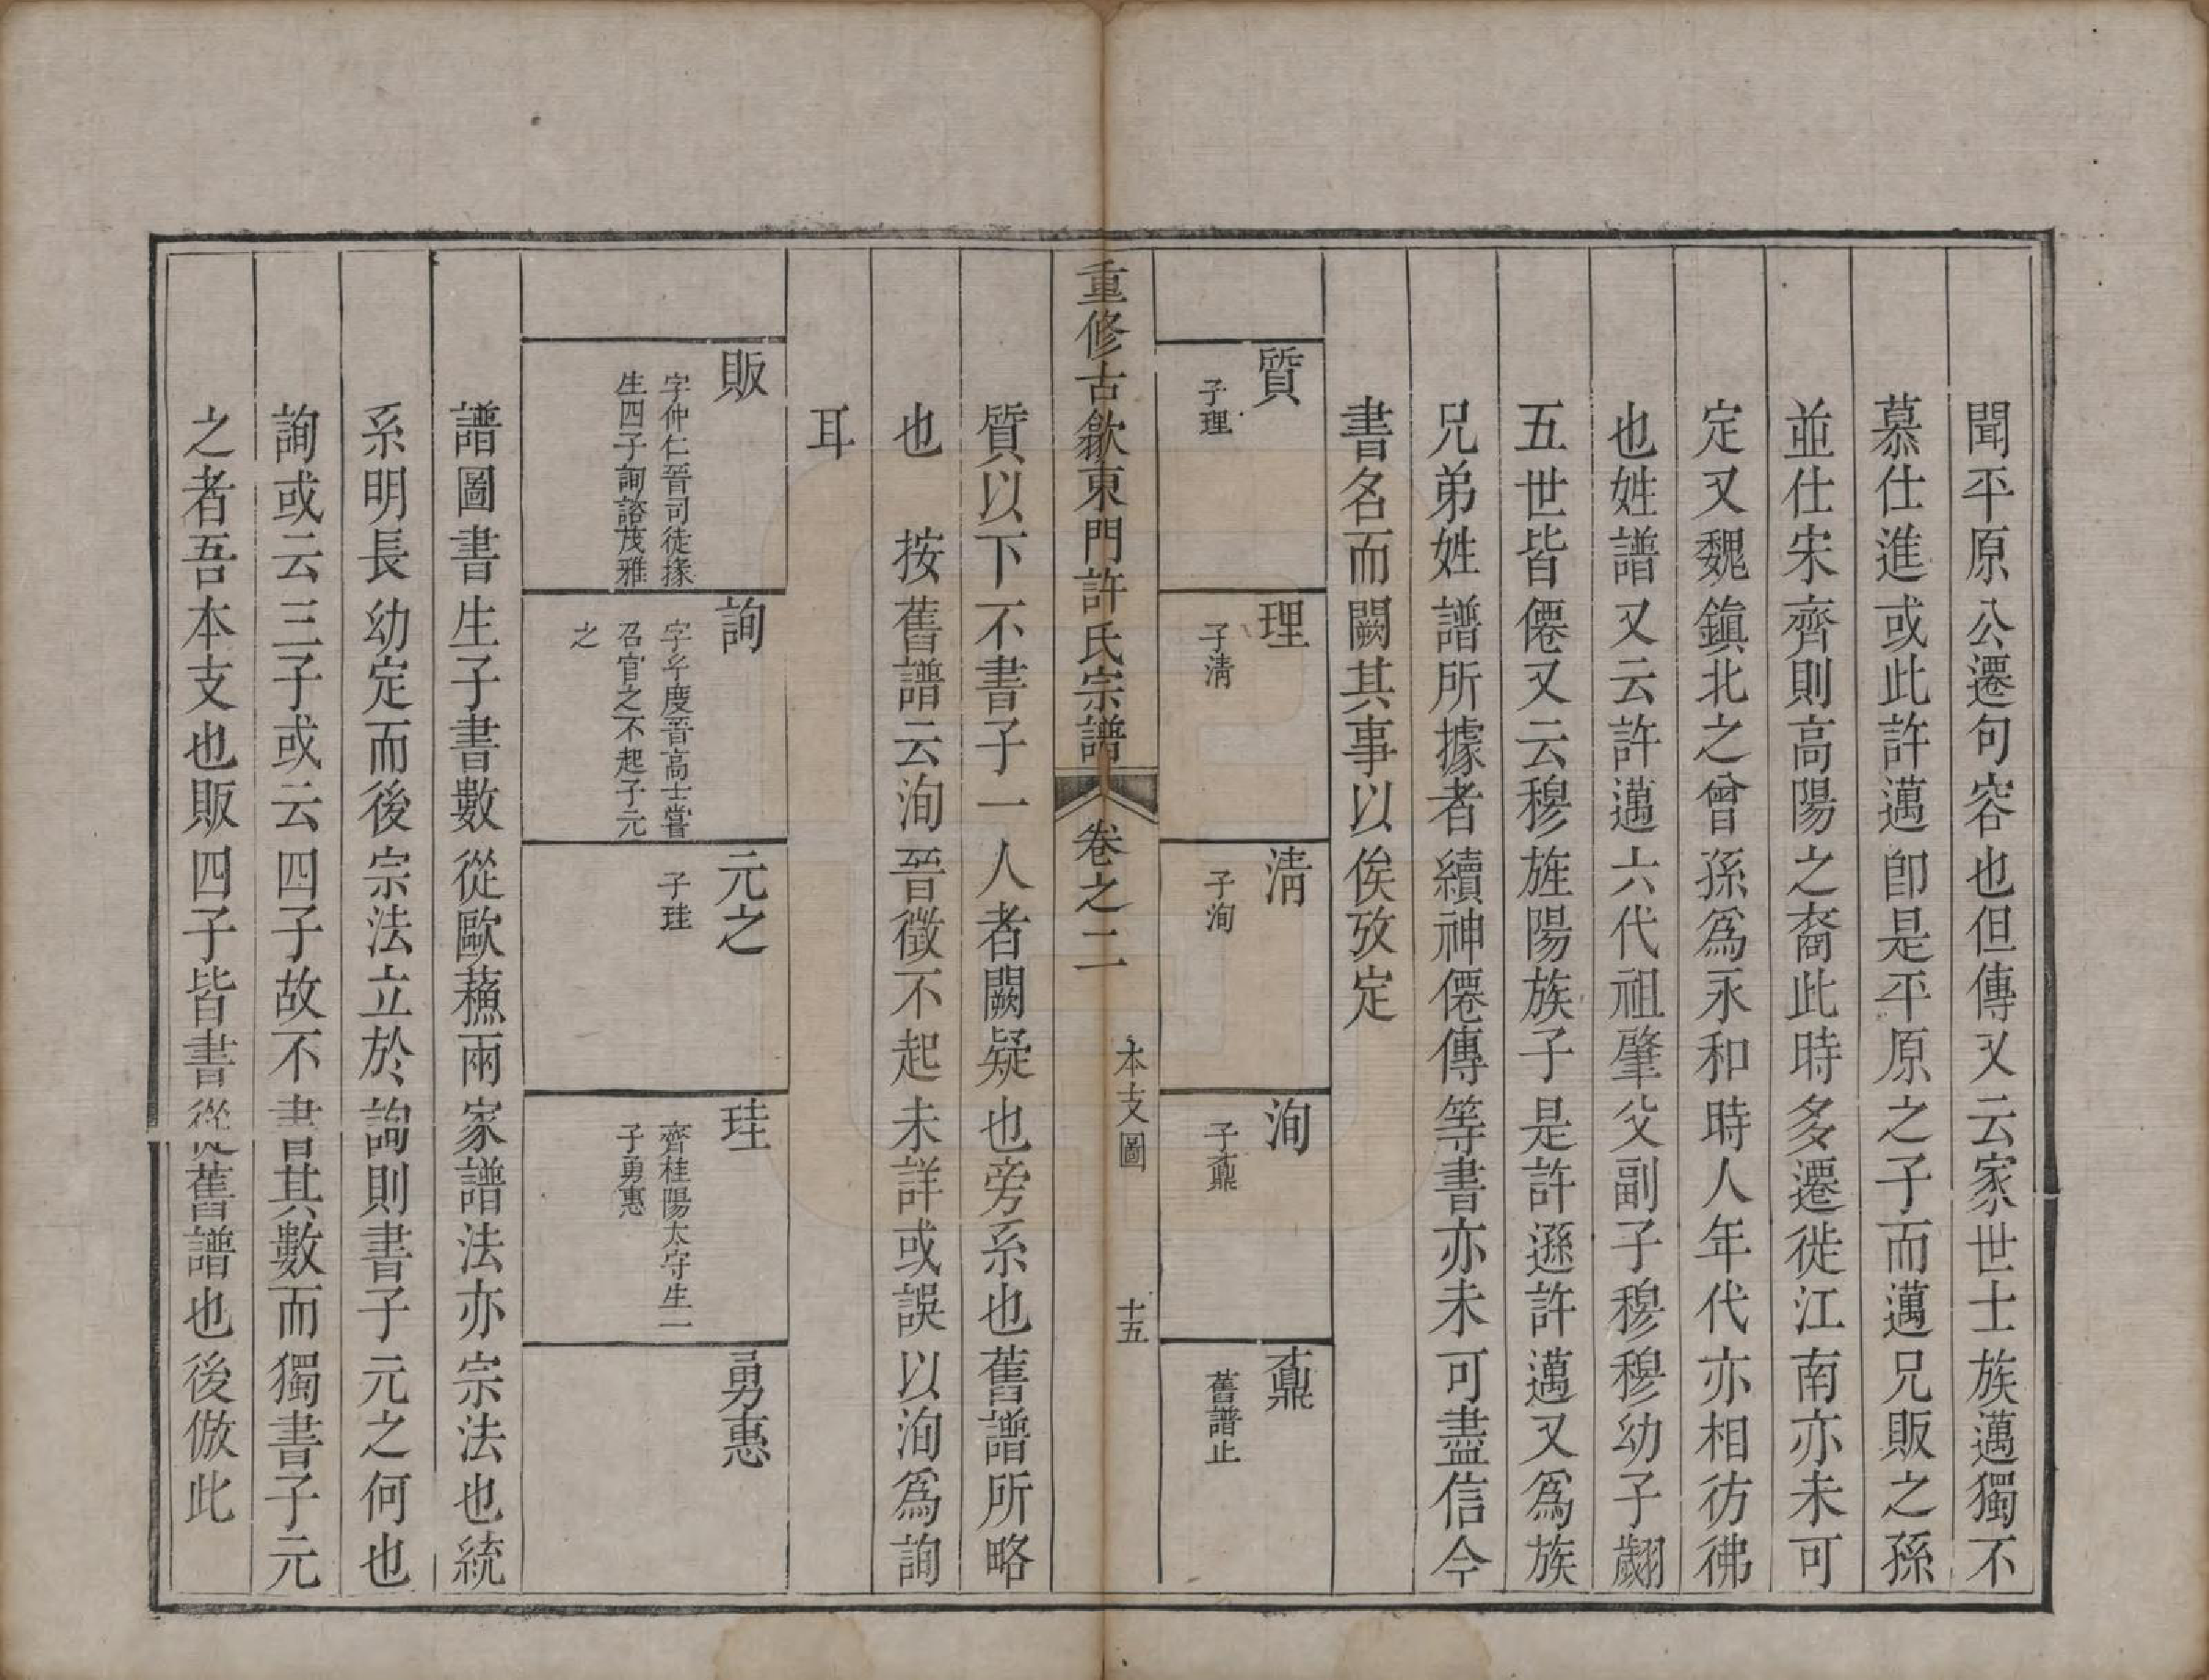 聞平原公遷句容也但傳又云家世士族邁獨不
慕仕進或此許邁卽是平原之子而邁兄販之孫
並仕宋齊則高陽之裔此時多遷徙江南亦未可
定又魏鎮北之曾孫爲永和時人年代亦相彷彿
也姓譜又云許邁六代祖肇父副子穆穆幼子翽
五世皆僊又云穆旌陽族子是許遜許邁又爲族
兄弟姓譜所據者續神僊傳等書亦未可盡信今
書名而闕其事以俟攷定
質
子理
理
子淸
淸
子洵
洵
子鼒
鼒
舊譜止
重修古歙東門許氏宗譜
卷之二
本支圖
十五
質以下不書子一人者闕疑也旁系也舊譜所略
也　按舊譜云洵晉徵不起未詳或誤以洵爲詢
耳
販
字仲仁晉司徒掾
生四子詢諮茂雅
詢
字玄度晉高士嘗
召官之不起子元
之
元之
子珪
珪
齊桂陽太守生一
子勇惠
勇惠
譜圖書生子書數從歐蘓兩家譜法亦宗法也統
系明長幼定而後宗法立於詢則書子元之何也
詢或云三子或云四子故不書其數而獨書子元
之者吾本支也販四子皆書從舊譜也後倣此